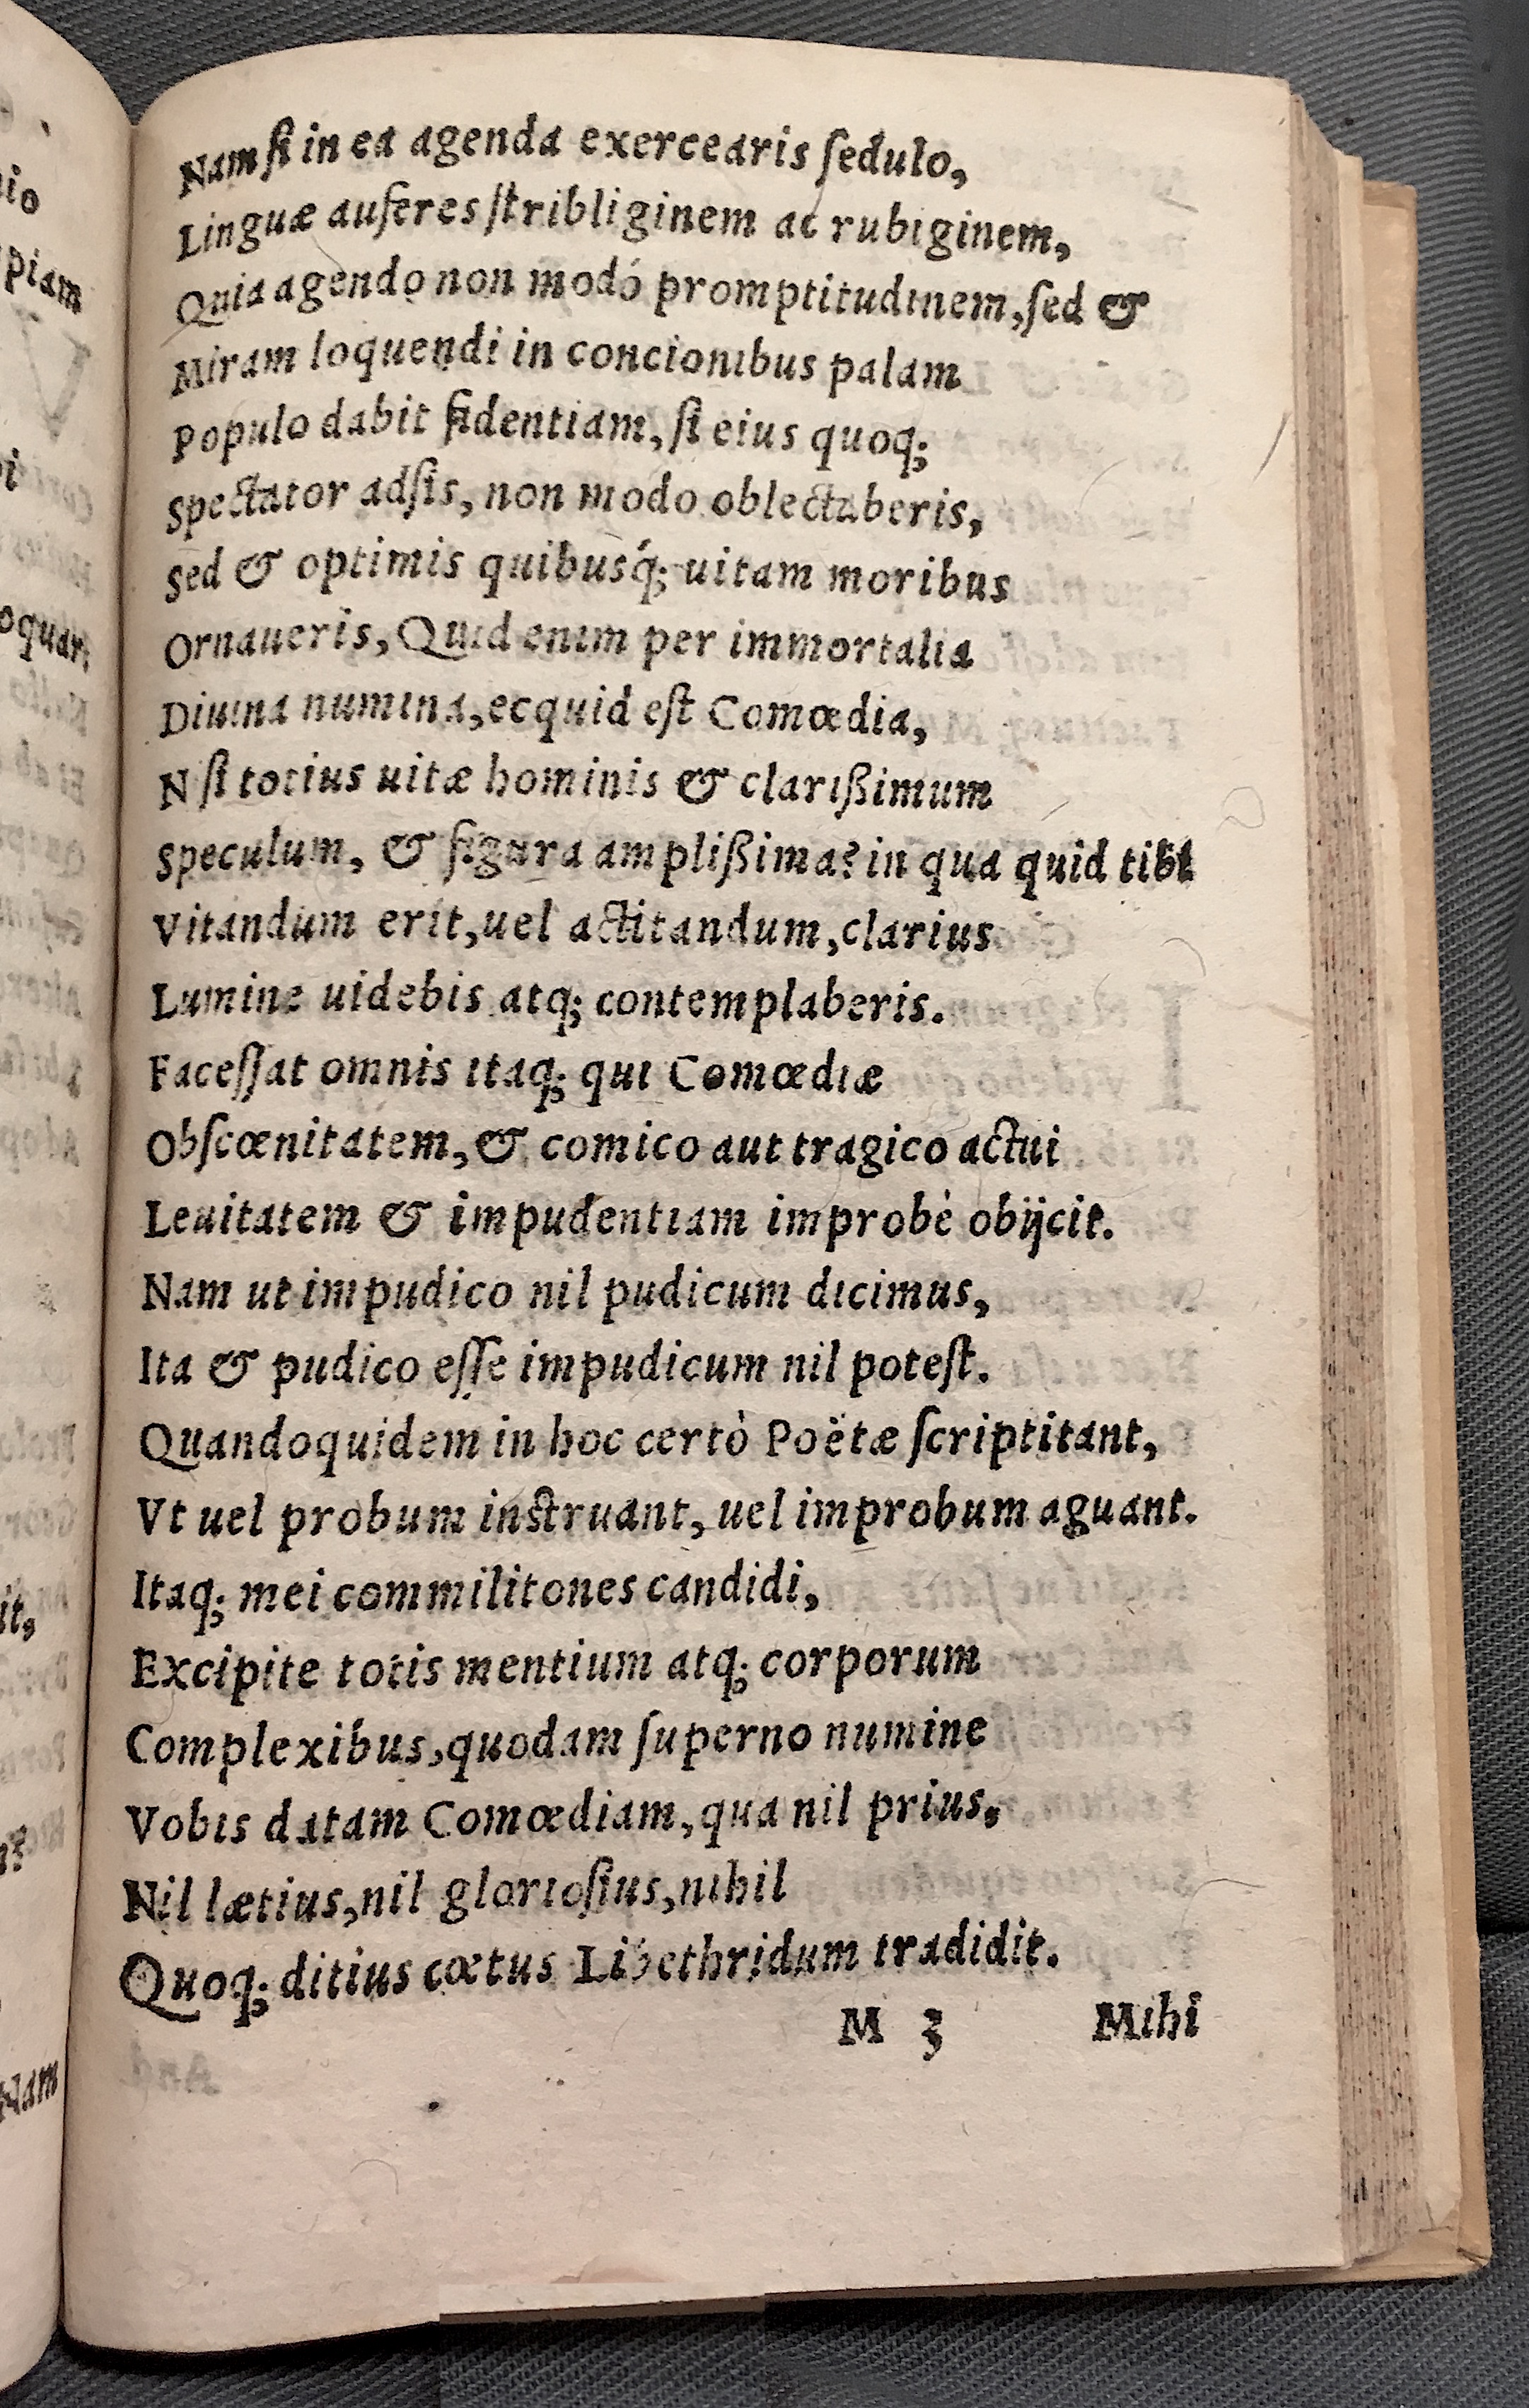 Nam ſi in ea agenda exercearis ſedulo,
Linguæ auferes ſtribliginem ac rubiginem,
Quia agendo non modò promptitudinem, ſed &
Miram loquendi in concionibus palam
Populo dabit fidentiam, ſi eius quoq;
Spectator adſis, non modo oblectaberis,
Sed & optimis quibusq́; uitam moribus
Ornaueris, Quid enim per immortalia
Diuina numina, ecquid eſt Comœdia,
N ſi totius uitæ hominis & clarißimum
Speculum, & figura amplißima? in qua quid tibi
Vitandum erit, uel actitandum, clarius
Lumine uidebis atq; contemplaberis.
Faceſſat omnis itaq; qui Comœdiæ
Obſcœnitatem, & comico aut tragico actui
Leuitatem & impudentiam improbè obijcit.
Nam ut impudico nil pudicum dicimus,
Ita & pudico eſſe impudicum nil poteſt.
Quandoquidem in hoc certò Poëtæ ſcriptitant,
Vt uel probum inſtruant, uel improbum aguant.
Itaq; mei commilitones candidi,
Excipite totis mentium atq; corporum
Complexibus, quodam ſuperno numine
Vobis datam Comœdiam, qua nil prius,
Nil lætius, nil glorioſius, nihil
Quoq; ditius cœtus Libethridum tradidit.
M 3 Mihi